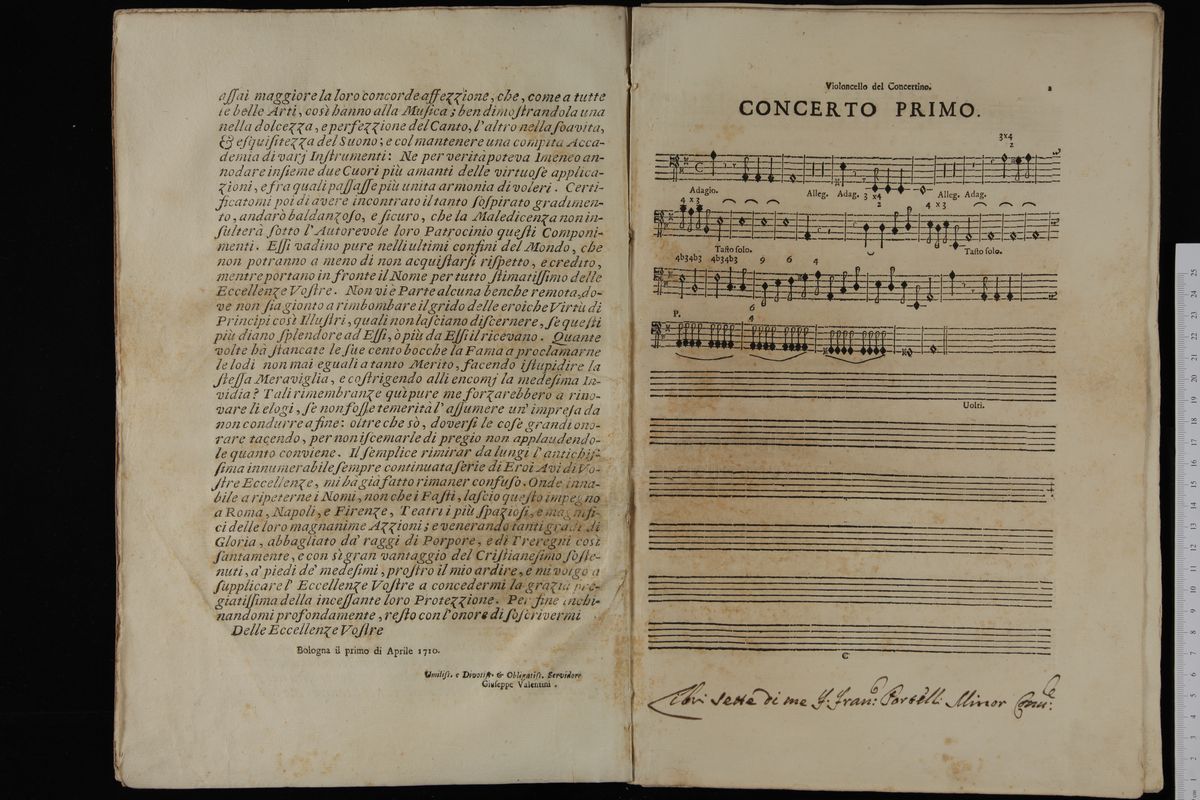 aſſai maggiore la loro concorde affezzione, che, come a tutte
le belle Arti, così hanno alla Muſica; ben dimoſtrandola una
nella dolcezza, e perfezzione del Canto, l'altro nella ſoavita,
& eſquiſitezza del Suono; e col mantenere una compita Acca-
demia di varj Inſtrumenti: Ne per verità poteva Imeneo an-
nodare inſieme due Cuori più amanti delle virtuoſe applica-
zioni, e fra quali paſſaſſe più unita armonia di voleri. Certi-
ficatomi poi di avere incontrato il tanto ſoſpirato gradimen-
to, andarò baldanzoſo, e ſicuro, che la Maledicenza non in-
ſulterà ſotto l'Autorevole loro Patrocinio queſti Componi-
menti. Eſſi vadino pure nelli ultimi confini del Mondo, che
non potranno a meno di non acquiſtarſi riſpetto, e credito,
mentre portano in fronte il Nome per tutto ſtimatiſſimo delle
Eccellenze Voſtre. Non vi è Parte alcuna benche remota, do-
ve non ſia gionto a rimbombare il grido delle eroiche Virtù di
Principi così Illuſtri, quali non laſciano diſcernere, ſe queſti
più diano ſplendore ad Eſſi, ò più da Eſſi il ricevano. Quante
volte hà ſtancate le ſue cento bocche la Fama a proclamarne
le lodi non mai eguali a tanto Merito, facendo iſtupidire la
ſteſſa Meraviglia, e coſtrigendo alli encomj la medeſima In-
vidia? Tali rimembranze quì pure me forzarebbero a rino-
vare li elogj, ſe non foſſe temerità l'aſſumere un' impreſa da
non condurre a fine: oltre che sò, doverſi le coſe grandi ono-
rare tacendo, per non iſcemarle di pregio non applaudendo-
le quanto conviene. Il ſemplice rimirar da lungi l'antichiſ-
ſima innumerabile ſempre continuata ſerie di Eroi Avi di Vo-
ſtre Eccellenze, mi hà già fatto rimaner confuſo. Onde inna-
bile a ripeterne i Nomi, non che i Faſti, laſcio queſto impegno
a Roma, Napoli, e Firenze, Teatri i più ſpazioſi, e magnifi-
ci delle loro magnanime Azzioni; e venerando tanti gradi di
Gloria, abbagliato da' raggi di Porpore, e di Treregni così
ſantamente, e con sì gran vantaggio del Criſtianeſimo ſoſte-
nuti, a' piedi de' medeſimi, proſtro il mio ardire, e mi volgo a
ſupplicare l' Eccellenze Voſtre a concedermi la grazia pre-
giatiſſima della inceſſante loro Protezzione. Per fine inchi-
nandomi profondamente, reſto con l'onore di ſoſcrivermi
Delle Eccellenze Voſtre
Bologna il primo di Aprile 1710.
Umiliſſ. e Divotiſſ. & Obligatiſſ. Servidore
Giuſeppe Valentini.
Violoncello del Concertino. 2
CONCERTO PRIMO.
3x4
2
Adagio. Alleg. Adag. 3 x4 Alleg. Adag.
2
4 x 3 4 x 3
Taſto ſolo. Taſto ſolo.
4b34b3 4b34b3 9 6 4
P. 6
4
Uolti.
C